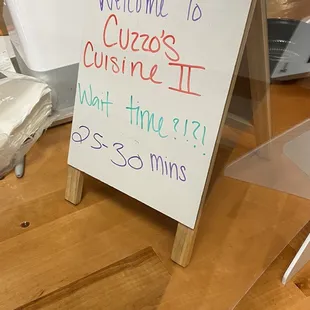 Welcome To
Cuzzo's
Cuisine II
Wait time?!?!
25-30 mins